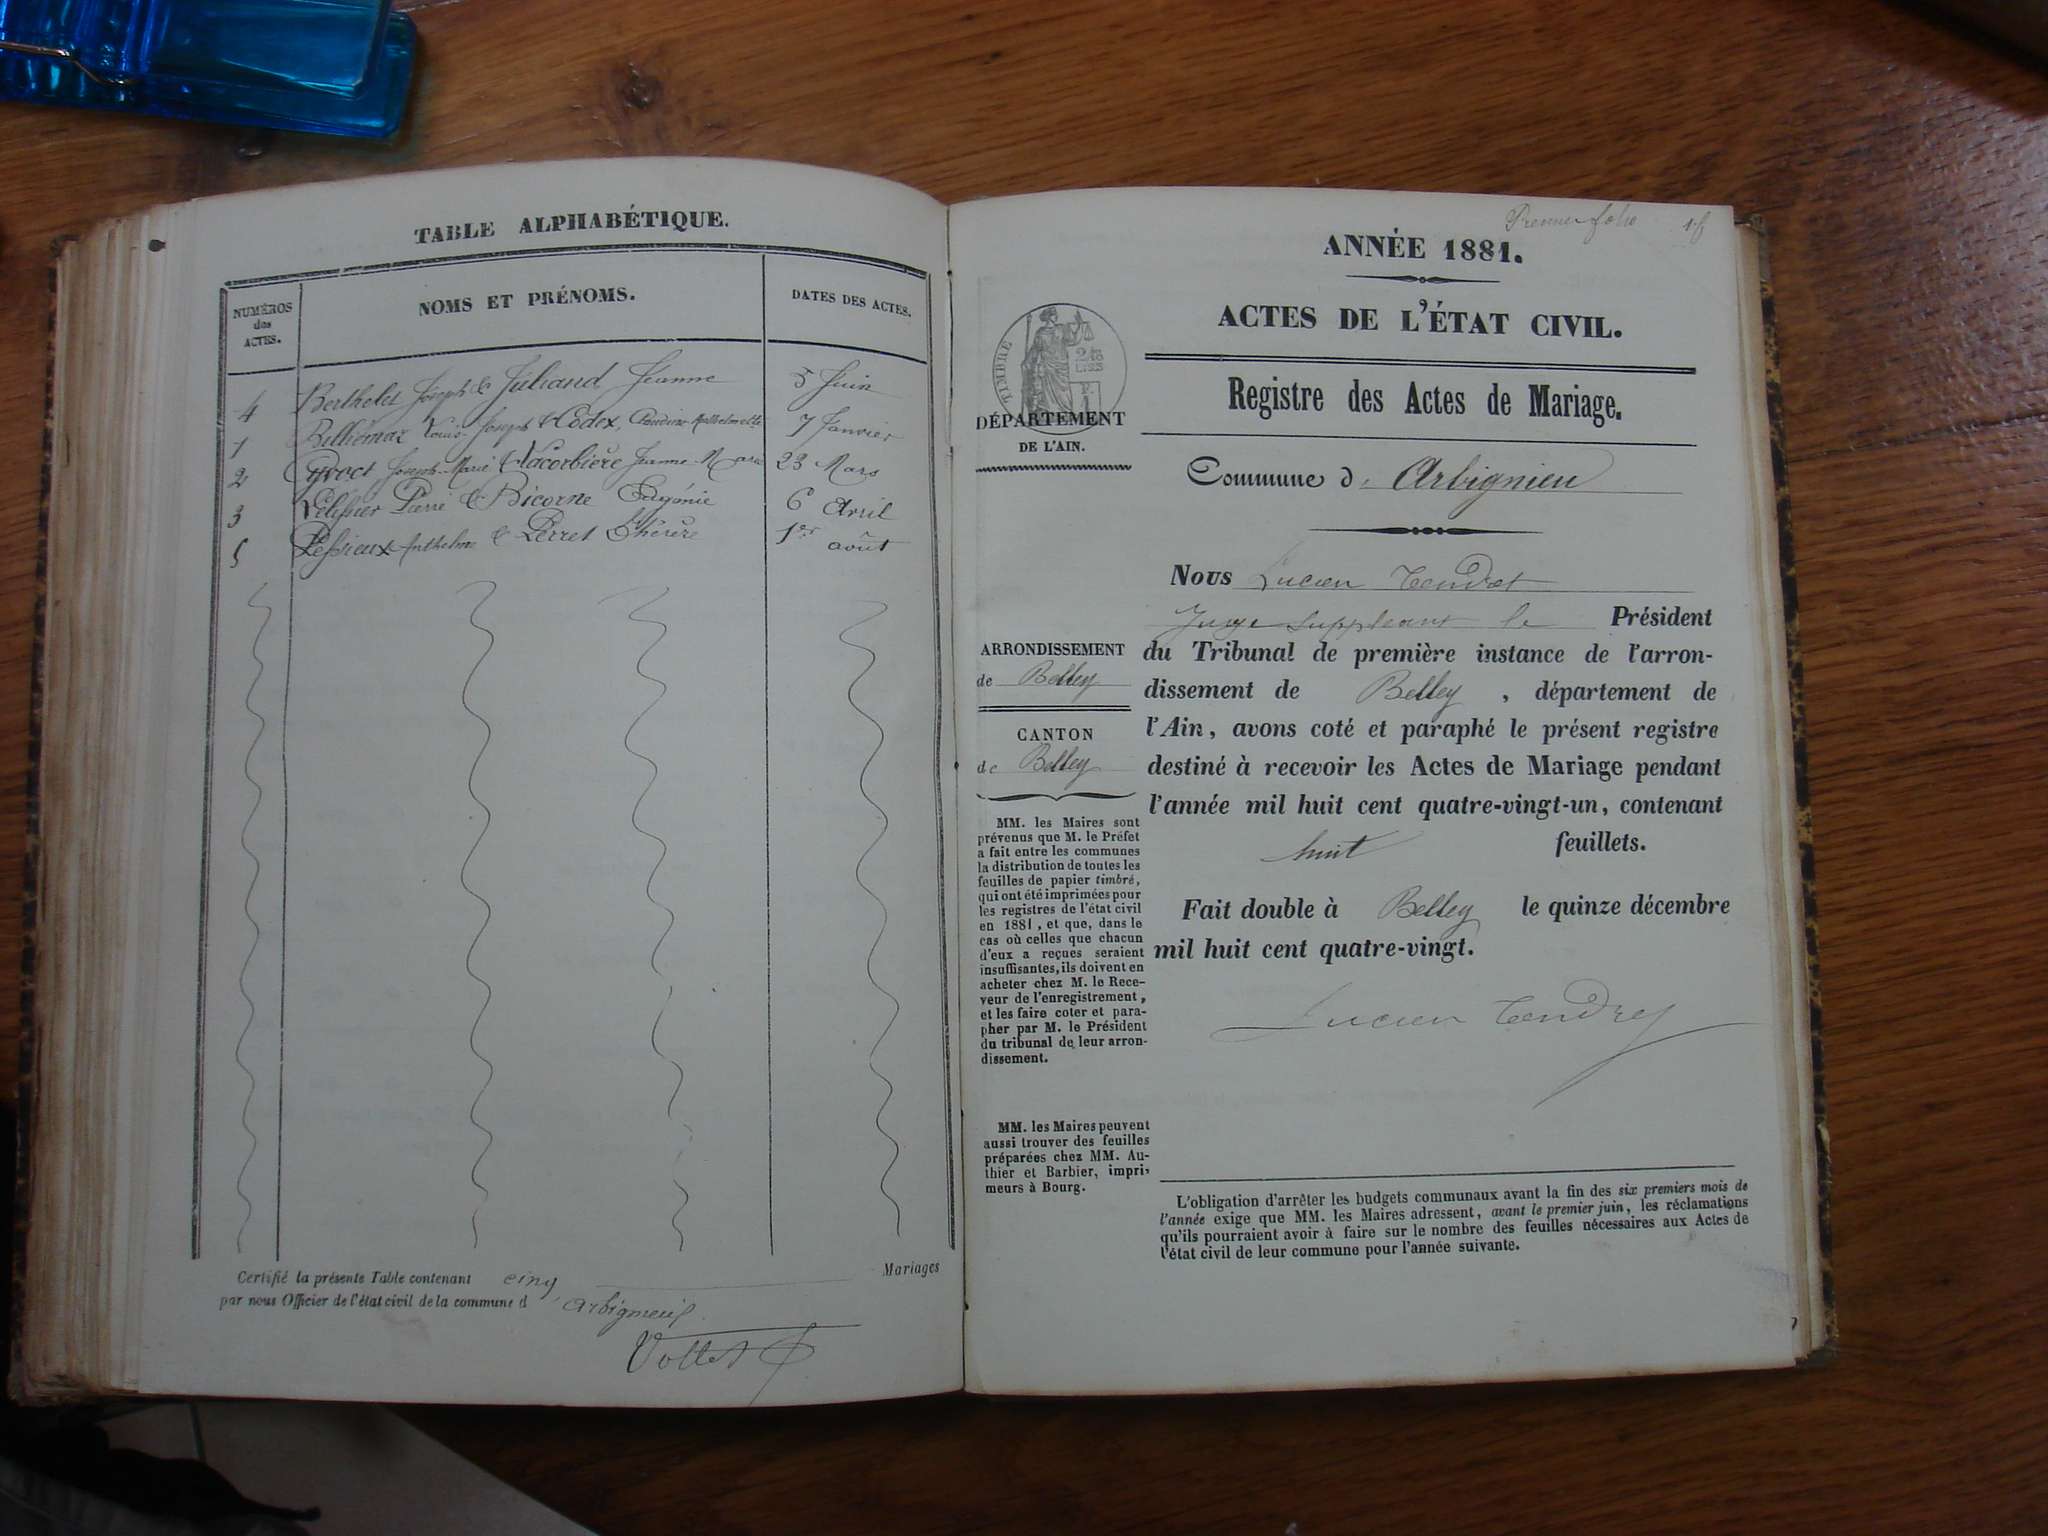 TABLE ALPHABÉTIQUE.
NUMÉROS
des
ACTES.
NOMS ET PRÉNOMS.
DATES DES ACTES.
4 Berthelet Joseph & Juliand Jeanne 5 Juin
1 Louis-Joseph & Codex, Claudine Anthelmette 7 Janvier
2 Joseph-Marie & Lacorbière Jeanne-Marie 23 Mars
3 Pélissier Pierre & Bicorne 6 Avril
5 Pessieux Anthelme & Perret Thérèse 1er août
Certifié la présente Table contenant cinq Mariages
par nous Officier de l'état civil de la commune d Arbignieu
Vollet
Premier folio
ANNÉE 1881.
ACTES DE L'ÉTAT CIVIL.
TIMBRE
DÉPARTEMENT
DE L'AIN.
Registre des Actes de Mariage.
Commune d' Arbignieu
Nous Lucien Tendret
Juge suppléant le Président
du Tribunal de première instance de l'arron-
dissement de Belley, département de
l'Ain, avons coté et paraphé le présent registre
destiné à recevoir les Actes de Mariage pendant
l'année mil huit cent quatre-vingt-un, contenant
huit feuillets.
Fait double à Belley le quinze décembre
mil huit cent quatre-vingt.
Lucien Tendret
ARRONDISSEMENT
de Belley
CANTON
de Belley
MM. les Maires sont
prévenus que M. le Préfet
a fait entre les communes
la distribution de toutes les
feuilles de papier timbré,
qui ont été imprimées pour
les registres de l'état civil
en 1881, et que, dans le
cas où celles que chacun
d'eux a reçues seraient
insuffisantes, ils doivent en
acheter chez M. le Rece-
veur de l'enregistrement,
et les faire coter et para-
pher par M. le Président
du tribunal de leur arron-
dissement.
MM. les Maires peuvent
aussi trouver des feuilles
préparées chez MM. Au-
thier et Barbier, impri-
meurs à Bourg.
L'obligation d'arrêter les budgets communaux avant la fin des six premiers mois de
l'année exige que MM. les Maires adressent, avant le premier juin, les réclamations
qu'ils pourraient avoir à faire sur le nombre des feuilles nécessaires aux Actes de
l'état civil de leur commune pour l'année suivante.